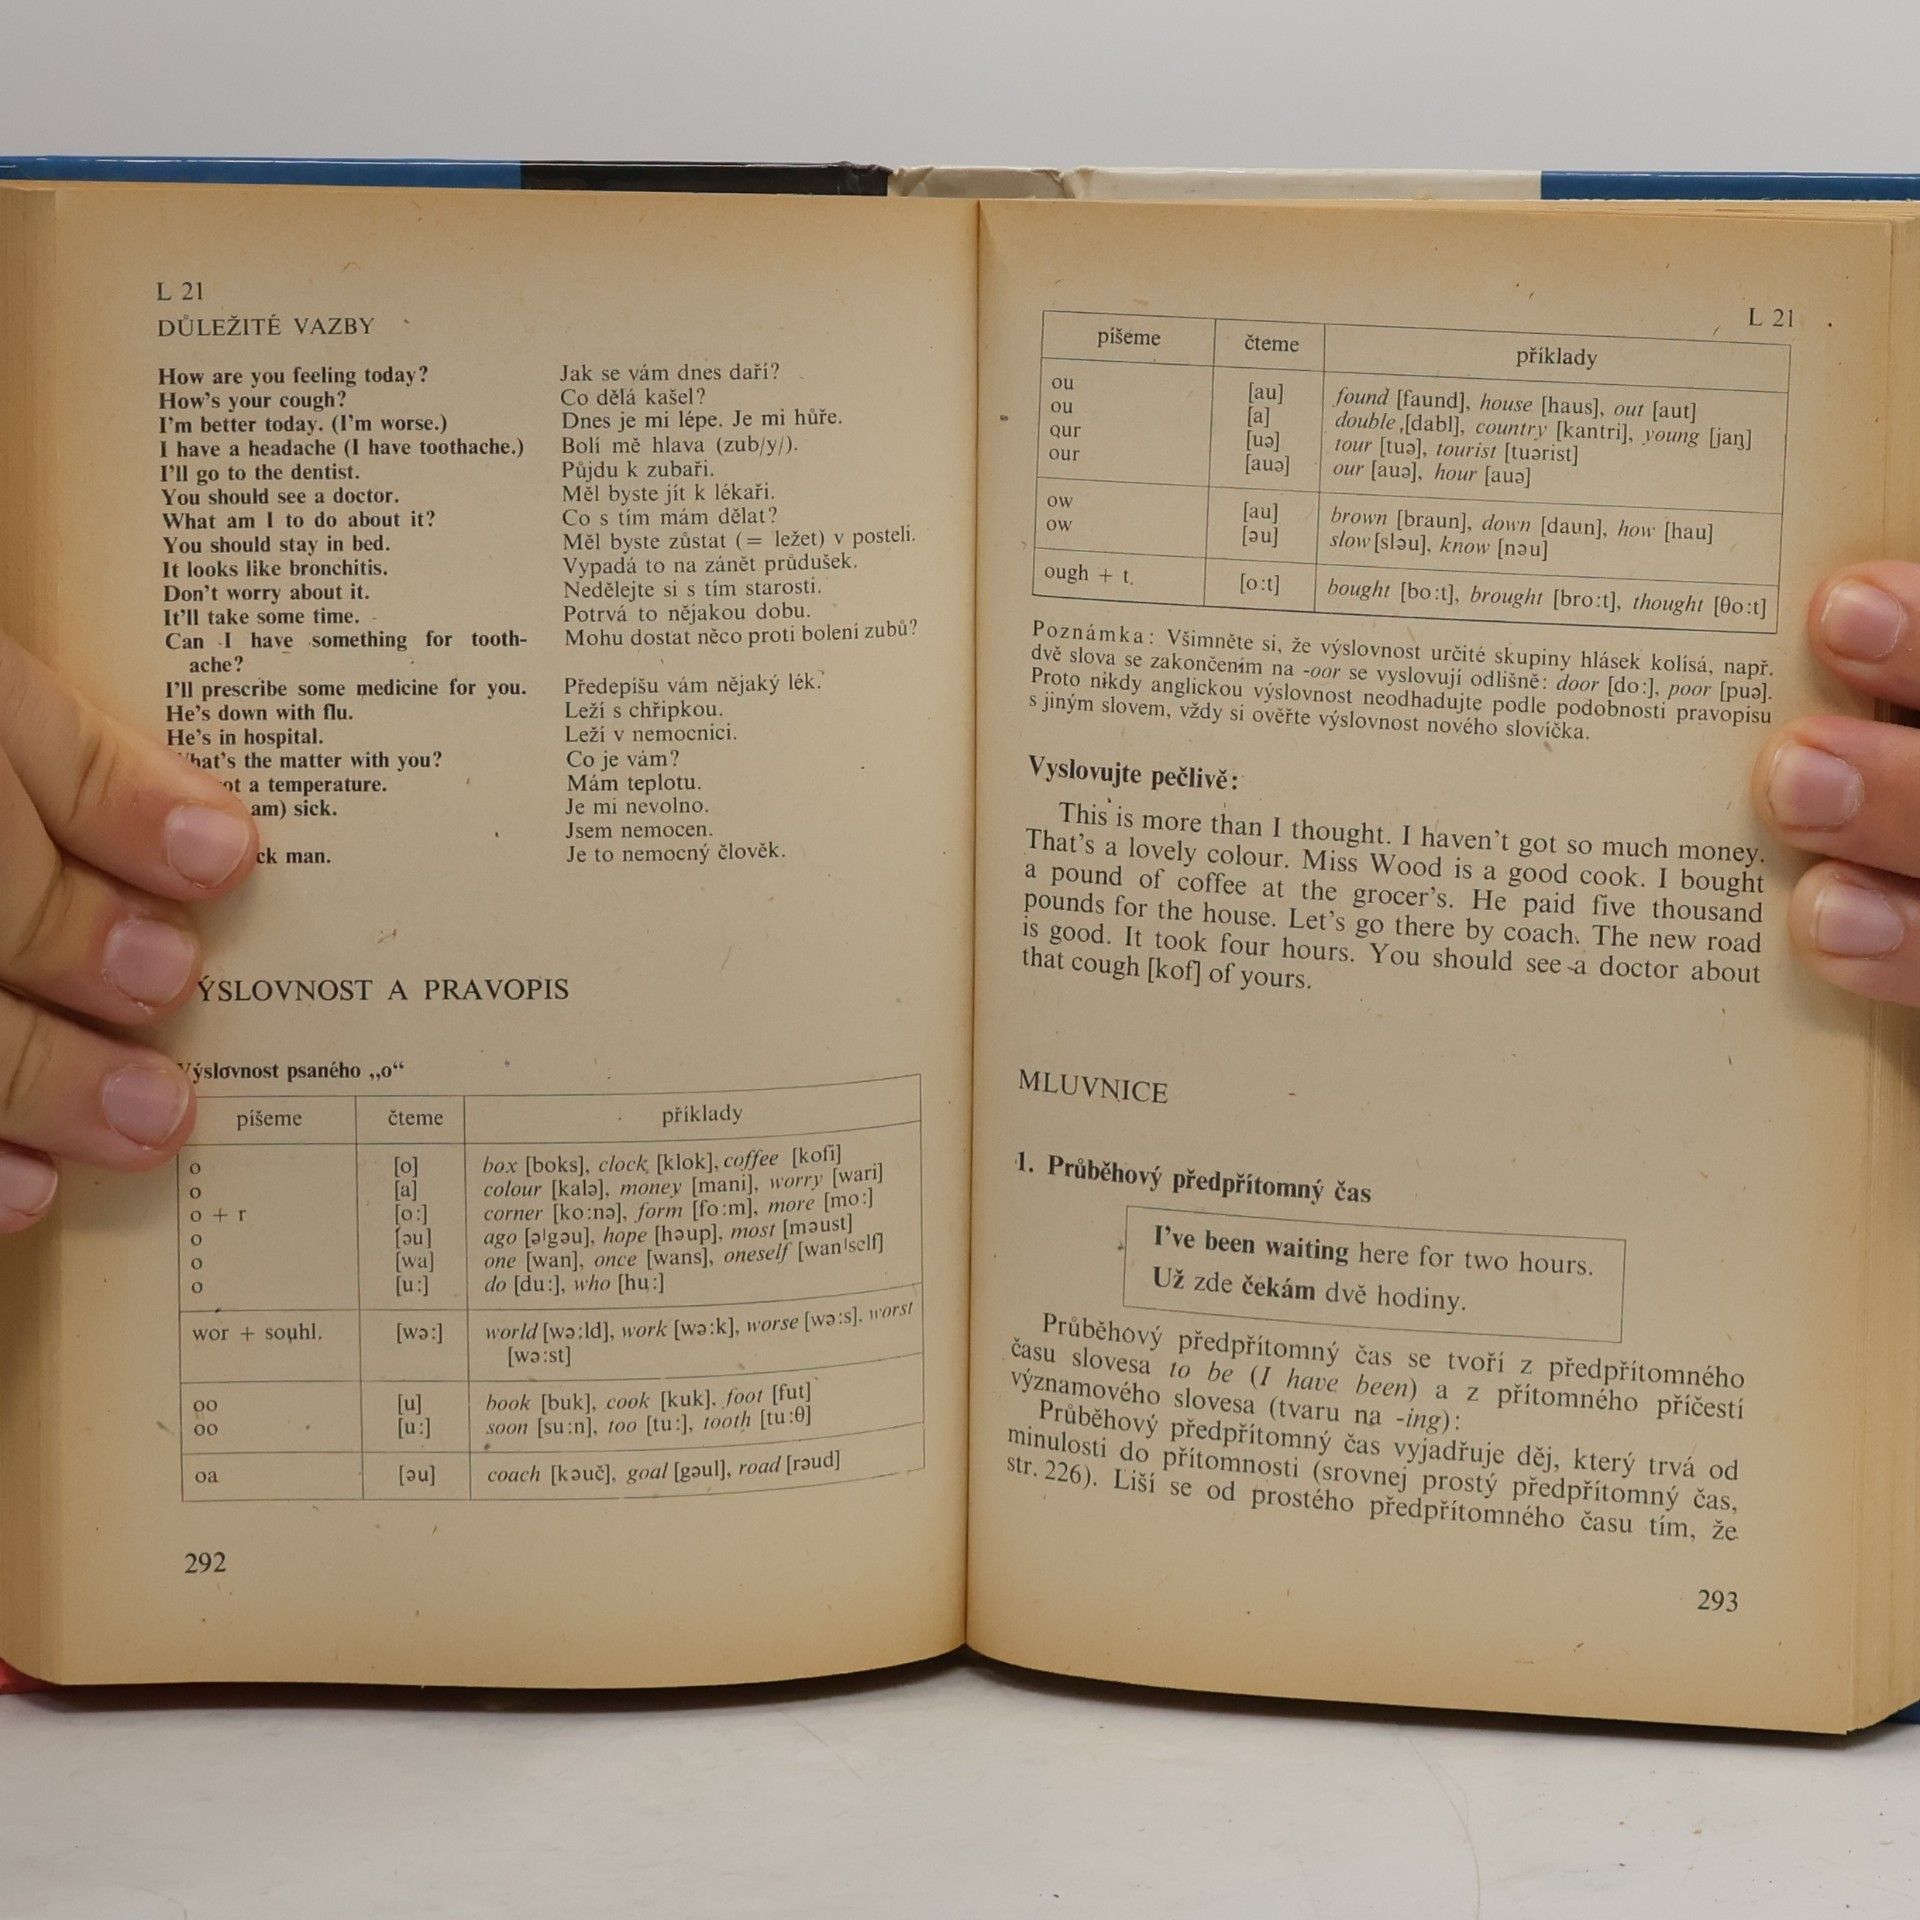 L 21
DŮLEŽITÉ VAZBY
How are you feeling today? Jak se vám dnes daří?
How's your cough? Co dělá kašel?
I'm better today. (I'm worse.) Dnes je mi lépe. Je mi hůře.
I have a headache (I have toothache.) Bolí mě hlava (zub/y/).
I'll go to the dentist. Půjdu k zubaři.
You should see a doctor. Měl byste jít k lékaři.
What am I to do about it? Co s tím mám dělat?
You should stay in bed. Měl byste zůstat (= ležet) v posteli.
It looks like bronchitis. Vypadá to na zánět průdušek.
Don't worry about it. Nedělejte si s tím starosti.
It'll take some time. Potrvá to nějakou dobu.
Can I have something for tooth- Mohu dostat něco proti bolení zubů?
ache?
I'll prescribe some medicine for you. Předepíšu vám nějaký lék.
He's down with flu. Leží s chřipkou.
He's in hospital. Leží v nemocnici.
the matter with you? Co je vám?
a temperature. Mám teplotu.
am) sick. Je mi nevolno.
Jsem nemocen.
man. Je to nemocný člověk.
ÝSLOVNOST A PRAVOPIS
Výslovnost psaného „o“
píšeme čteme příklady
o [o] box [boks], clock [klok], coffee [kofi]
o [a] colour [kalə], money [mani], worry [wari]
o + r [o:] corner [ko:nə], form [fo:m], more [mo:]
o [əu] ago [əˈgəu], hope [həup], most [məust]
o [wa] one [wan], once [wans], oneself [wanˈself]
o [u:] do [du:], who [hu:]
wor + souhl. [wə:] world [wə:ld], work [wə:k], worse [wə:s], worst
[wə:st]
oo [u] book [buk], cook [kuk], foot [fut]
oo [u:] soon [su:n], too [tu:], tooth [tu:θ]
oa [əu] coach [kəuč], goal [gəul], road [rəud]
292
L 21
píšeme čteme příklady
ou [au] found [faund], house [haus], out [aut]
ou [a] double [dabl], country [kantri], young [jaŋ]
our [uə] tour [tuə], tourist [tuərist]
our [auə] our [auə], hour [auə]
ow [au] brown [braun], down [daun], how [hau]
ow [əu] slow [sləu], know [nəu]
ough + t. [o:t] bought [bo:t], brought [bro:t], thought [θo:t]
Poznámka: Všimněte si, že výslovnost určité skupiny hlásek kolísá, např.
dvě slova se zakončením na -oor se vyslovují odlišně: door [do:], poor [puə].
Proto nikdy anglickou výslovnost neodhadujte podle podobnosti pravopisu
s jiným slovem, vždy si ověřte výslovnost nového slovíčka.
Vyslovujte pečlivě:
This is more than I thought. I haven't got so much money.
That's a lovely colour. Miss Wood is a good cook. I bought
a pound of coffee at the grocer's. He paid five thousand
pounds for the house. Let's go there by coach. The new road
is good. It took four hours. You should see a doctor about
that cough [kof] of yours.
MLUVNICE
1. Průběhový předpřítomný čas
I've been waiting here for two hours.
Už zde čekám dvě hodiny.
Průběhový předpřítomný čas se tvoří z předpřítomného
času slovesa to be (I have been) a z přítomného příčestí
významového slovesa (tvaru na -ing):
Průběhový předpřítomný čas vyjadřuje děj, který trvá od
minulosti do přítomnosti (srovnej prostý předpřítomný čas,
str. 226). Liší se od prostého předpřítomného času tím, že
293